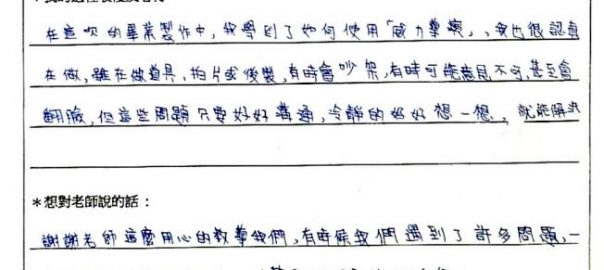 在這次的畢業製作中,我學到了如何使用「威力導演」,我也很認真
在做,雖在做道具,拍片或後製,有時會吵架,有時可能意見不同,甚至會
翻臉,但這些問題只要好好溝通,冷靜的好好想一想,就能解決
*想對老師說的話:
謝謝老師這麼用心的教學我們,有時候我們遇到了許多問題,一